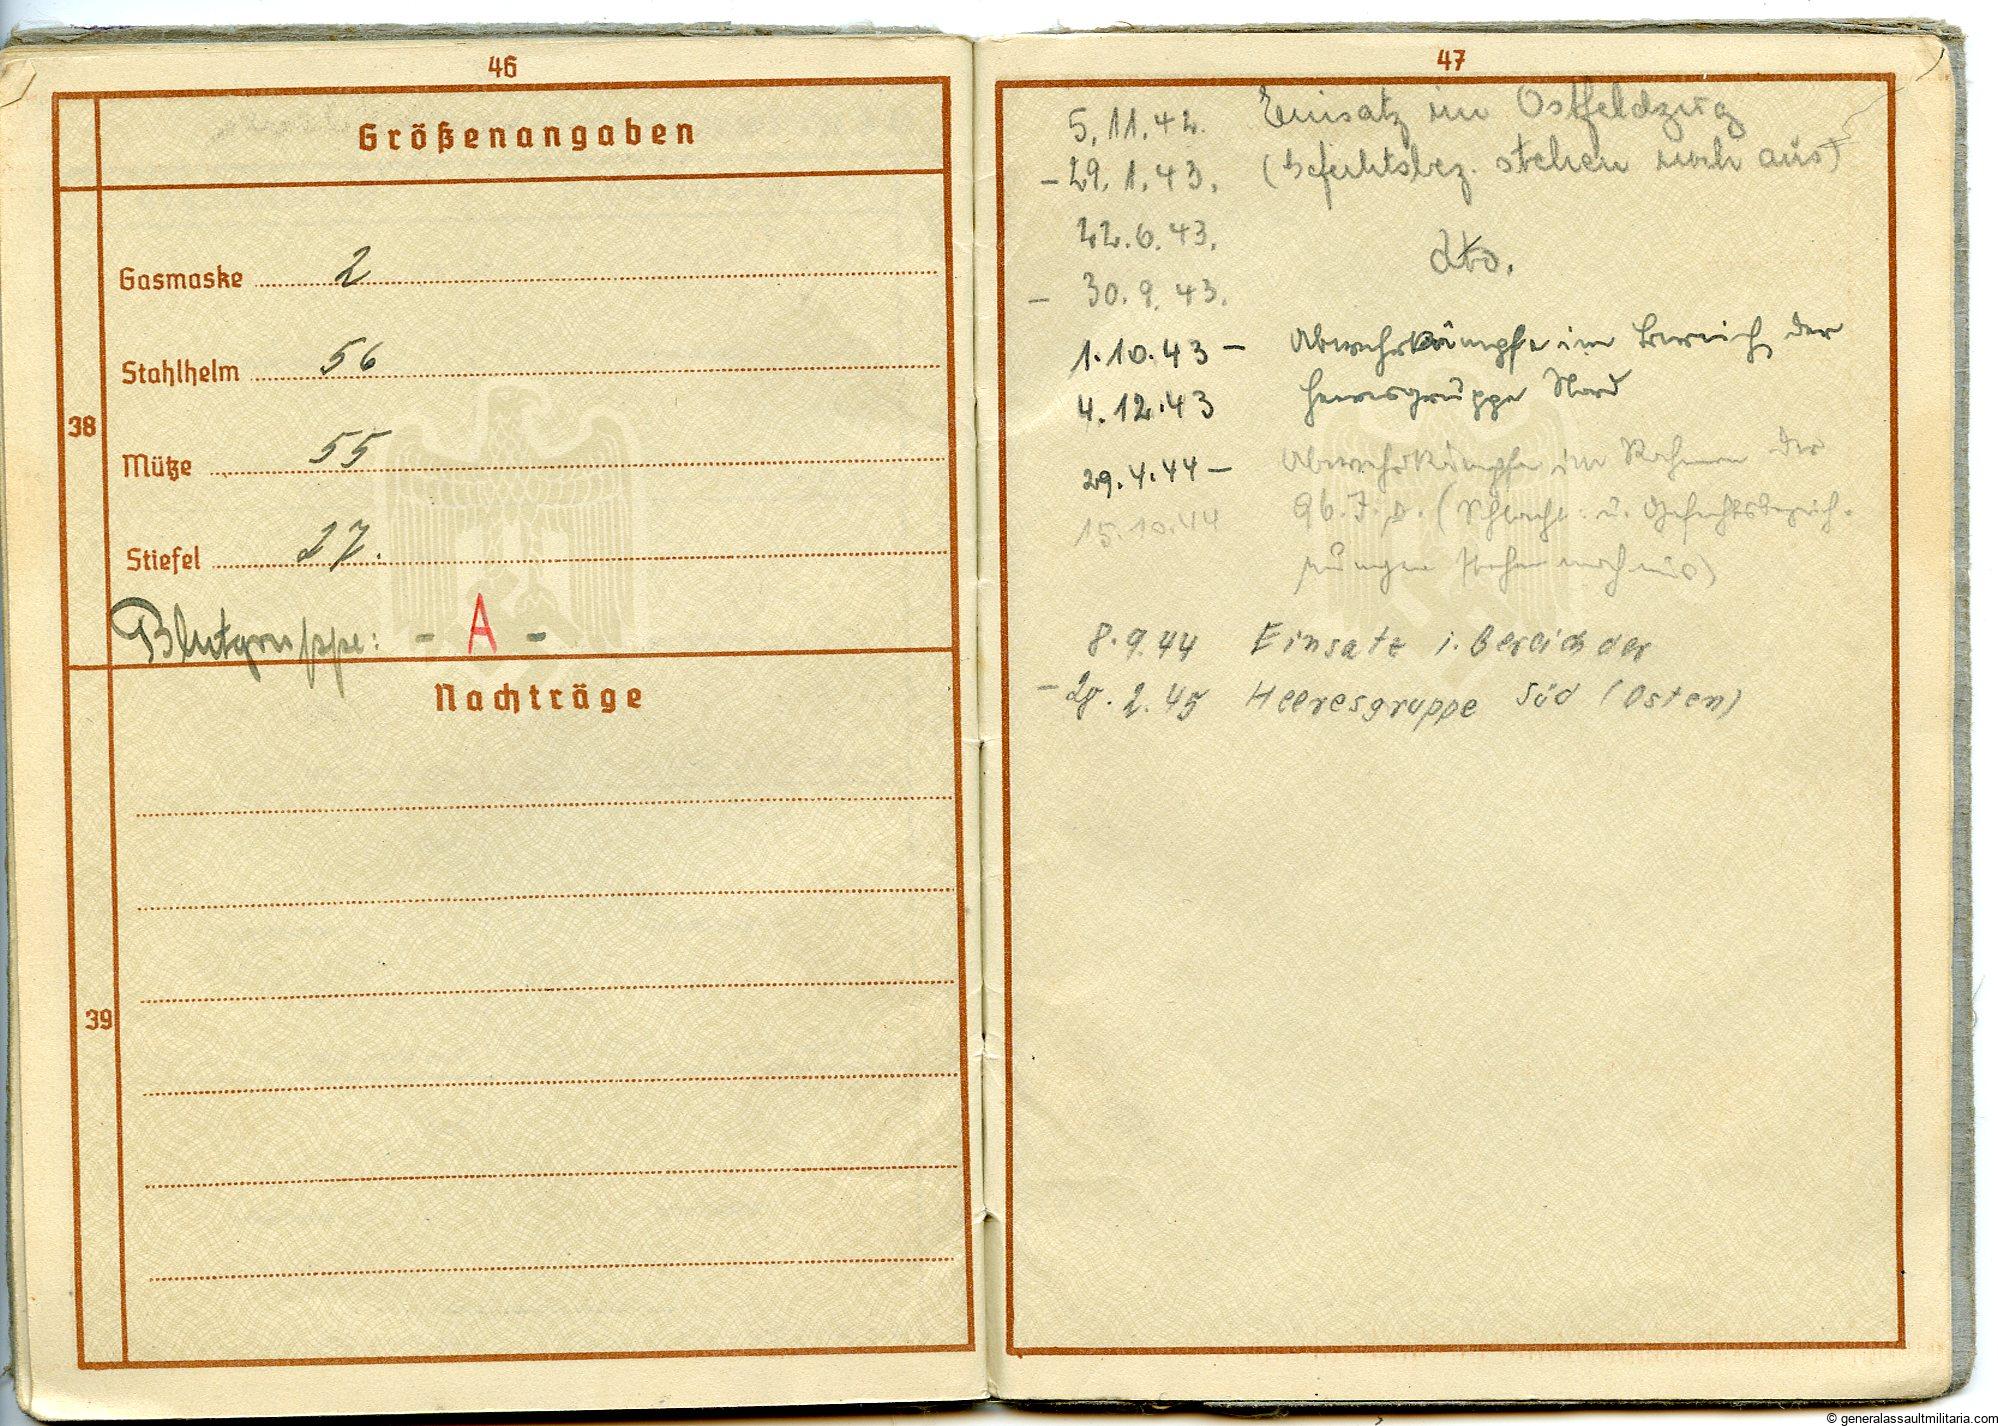 46
Größenangaben
38
Gasmaske 2
Stahlhelm 56
Mütze 55
Stiefel 27.
Blutgruppe: - A -
Nachträge
39
47
5.11.42. Einsatz im Ostfeldzug
- 29.1.43. (Gefechtsbez. stehen noch aus)
22.6.43. dto.
- 30.9.43.
1.10.43 - Abwehrkämpfe im Bereich der
4.12.43 Heeresgruppe Nord
29.4.44 - Abwehrkämpfe im Rahmen der
15.10.44 96. J.D. (Schlacht- u. Gefechtsbezeich-
nungen stehen noch aus)
8.9.44 Einsatz i. Bereich der
- 28.2.45 Heeresgruppe Süd (Osten)
© generalassaultmilitaria.com